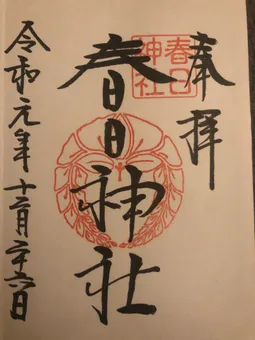 奉拝
春日神社
春日神社
令和元年十二月二十六日